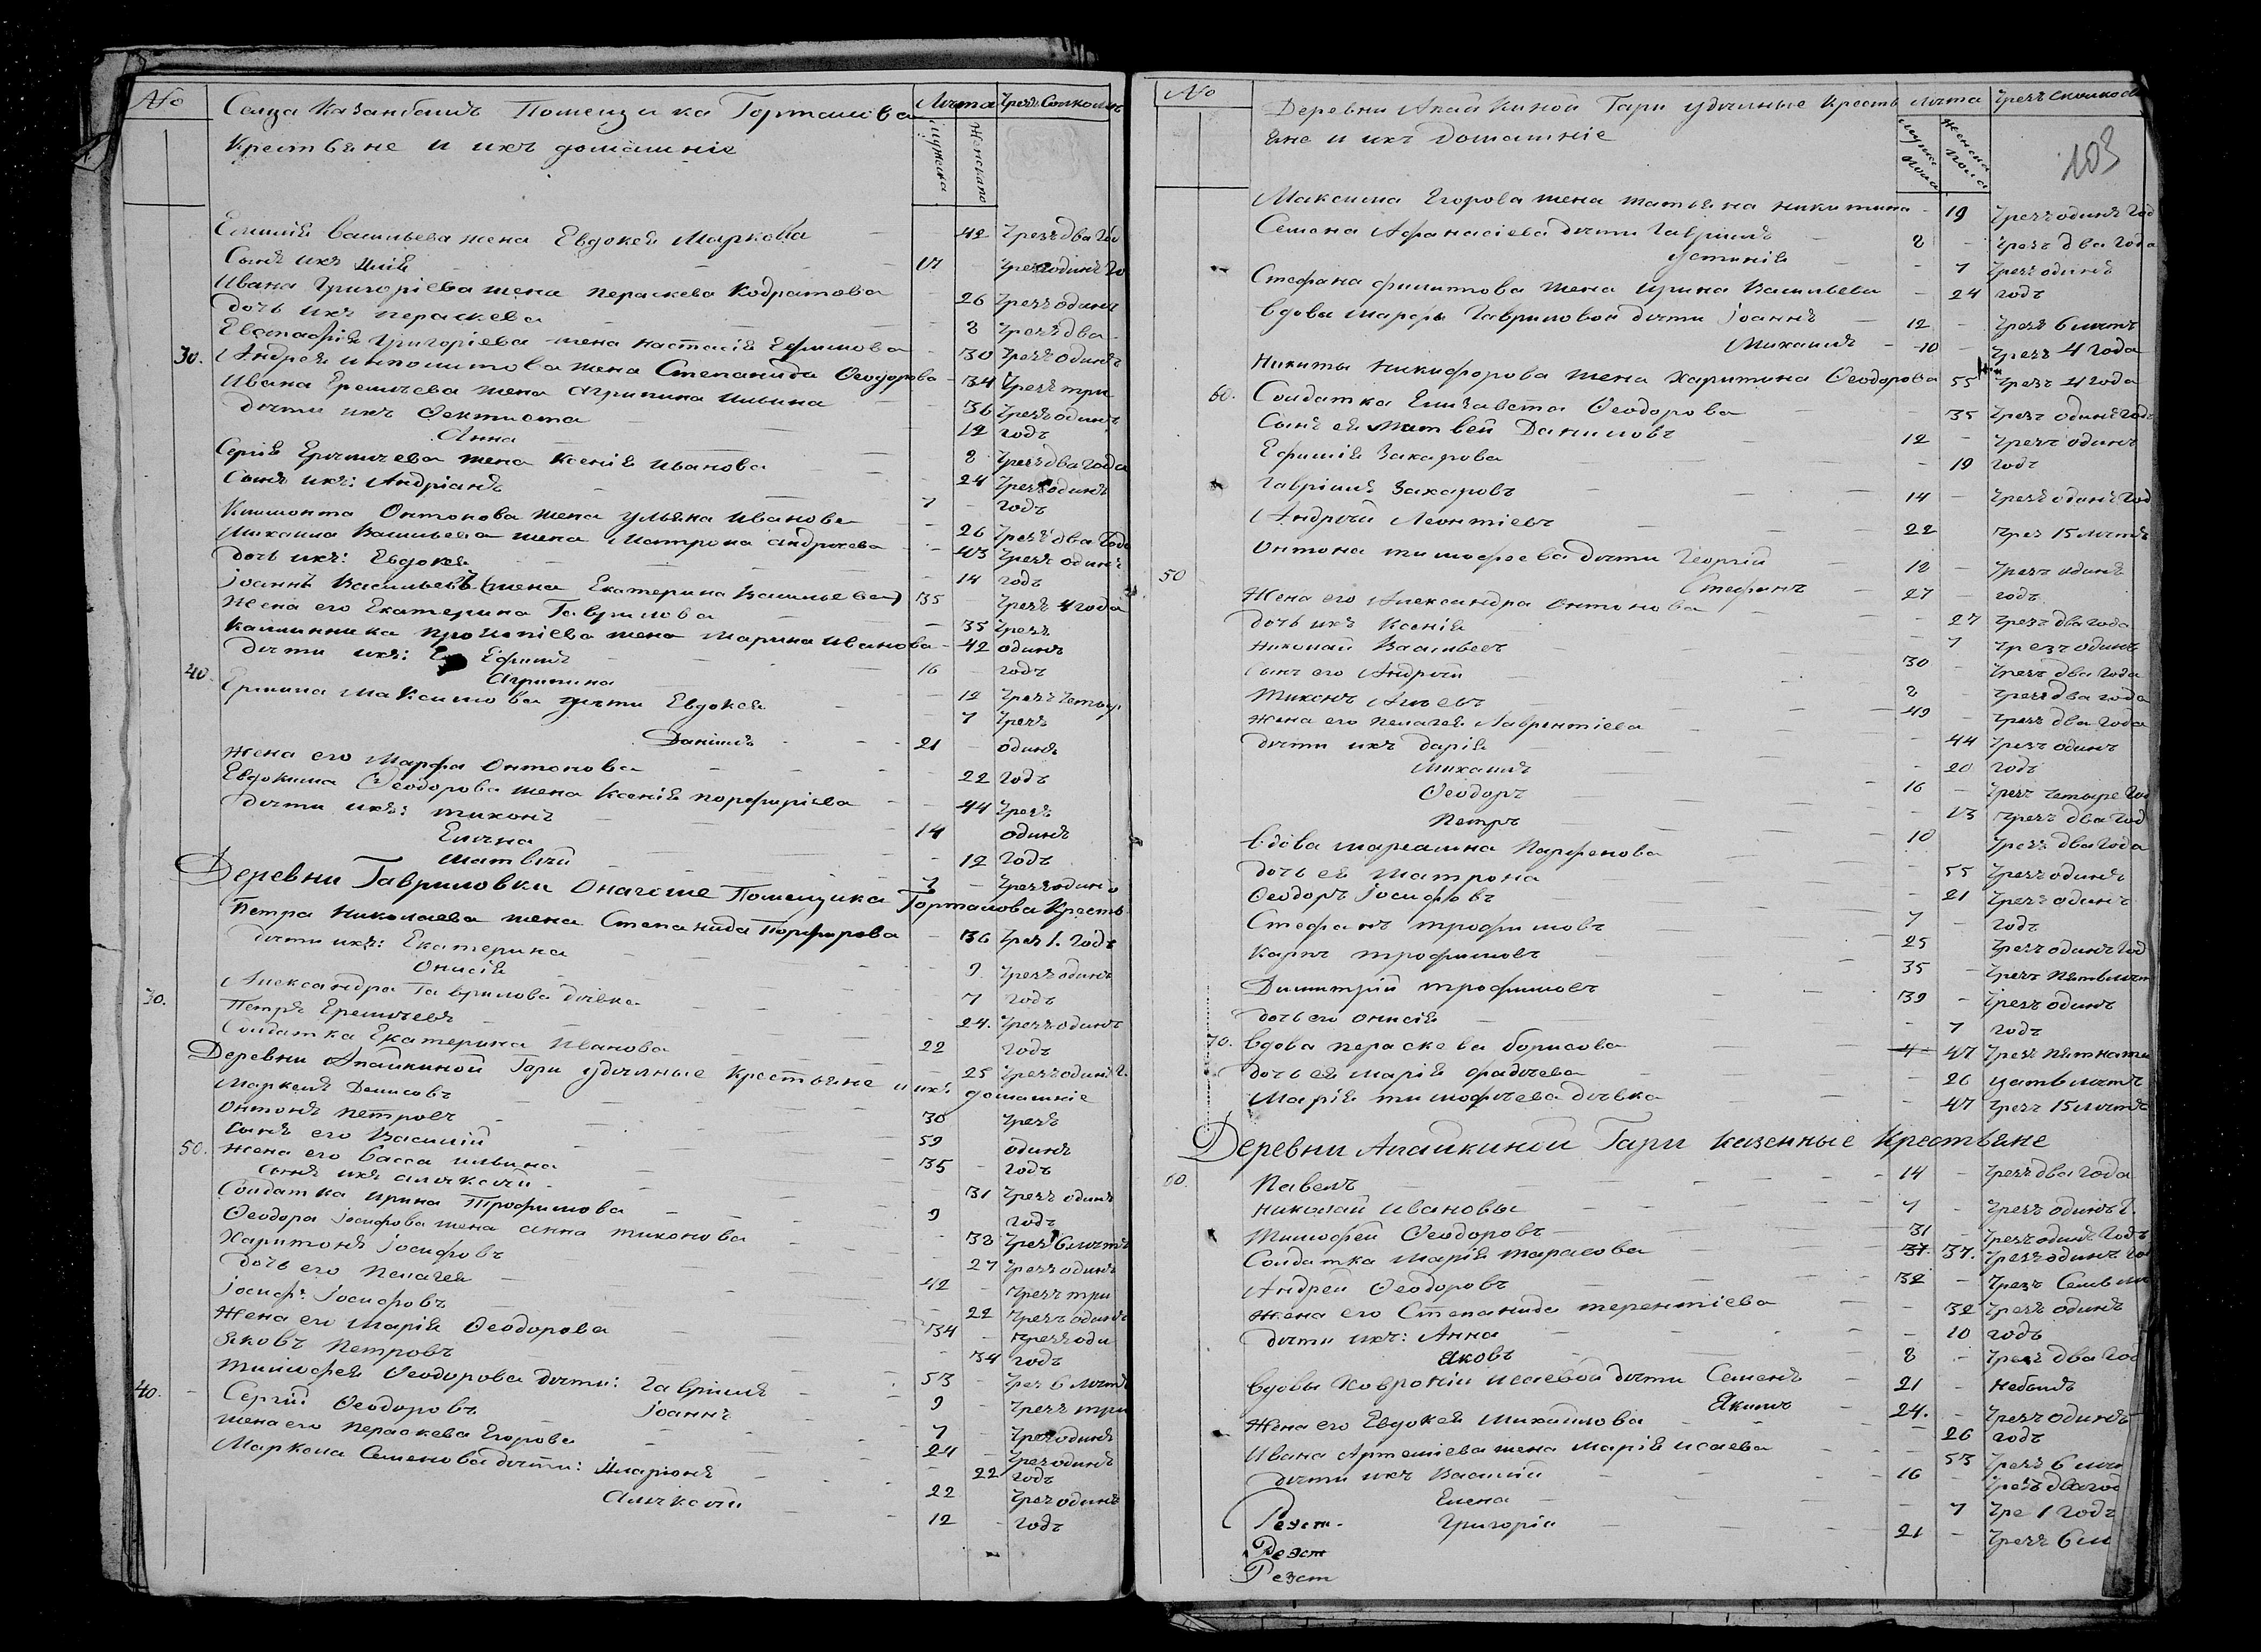 № Селца Казанбашъ Помещика Горталова Лѣта Чрезъ Сколко лѣтъ
Крестьяне и ихъ домашніе мужска женскаго
васильева жена Евдокея Маркова 42 Чрезъ два го
Сынъ ихъ Илія Чрезъ одинъ го
Ивана Григоріева жена Пераскева Кодратова 26 Чрезъ одинъ
дочь ихъ Пераскева 8 Чрезъ два
Евстафія Григоріева жена Настасія Ефимова 30 Чрезъ одинъ
30. Андрея Ипполитова жена Степанида Ѳеодорова 34 Чрезъ три
Ивана Еремѣева жена Агрипина Ильина 36 Чрезъ одинъ
дѣти ихъ Ѳектиста 12 годъ
Анна 8 Чрезъ два года
Сергія Еремѣева жена Ксенія Иванова 24 Чрезъ одинъ
Сынъ ихъ: Андріанъ 7 годъ
Климонта Онтонова жена Ульяна Иванова 26 Чрезъ два года
Михаила Васильева жена Матрона Андреева 43 Чрезъ одинъ
дочь ихъ: Евдокея 14 годъ
Іоаннъ Васильевъ (жена Екатерина Васильева) 35 Чрезъ 4 года
Жена его Екатерина Гаврилова 35 Чрезъ
Каллинника Прокопіева жена Марина Иванова 42 одинъ
дѣти ихъ: Ефимъ 16 годъ
40. Агрипина 12 Чрезъ четыр
Ермила Максимова дѣти Евдокея 7 Чрезъ
Даніилъ 21 одинъ
Жена его Марфа Онтонова 22 годъ
Евдокима Ѳеодорова жена Ксенія Порфиріева 44 Чрезъ
дѣти ихъ: Тихонъ 14 одинъ
Елена 12 годъ
Матвѣй 7 Чрезъ одинъ
Деревни Гавриловки Онагоже Помещика Горталова Кресть
Петра Николаева жена Степанида Порфирова 36 Чрез 1. годъ
дѣти ихъ: Екатерина 9 Чрезъ одинъ
Онисія 7 годъ
30. Александра Гаврилова дѣвка 24. Чрезъ одинъ
Петръ Еремѣевъ 22 годъ
Солдатка Екатерина Иванова 25 Чрезъ одинъ г.
Деревни Апайкиной Гари удѣлные крестьяне и ихъ домашніе
Маркелъ Денисовъ 30 Чрезъ
Онтонъ Петровъ 59 одинъ
Сынъ его Василій 35 годъ
50. Жена его Васса Ильина 31 Чрезъ одинъ
Сынъ ихъ Алѣксѣй 9 годъ
Солдатка Ирина Трофимова 38 Чрез 6 лѣтъ
Ѳеодора Іосифова жена Анна Тихонова 27 Чрезъ одинъ
Харитонъ Іосифовъ 42 Чрезъ три
дочь его Пелагея 22 Чрезъ одинъ
Іосифъ Іосифовъ 34 Чрезъ оди
Жена его Марія Ѳеодорова 34 годъ
Яковъ Петровъ 53 Чрез 6 лѣтъ
Тимофея Ѳеодорова дѣти: Гавріилъ 9 Чрезъ три
40. Іоаннъ 7 Чрезъ одинъ
Сергій Ѳеодоровъ 24 Чрезъ одинъ
Жена его Пераскева Егорова 22 годъ
Маркела Семенова дѣти: Иларіонъ 22 Чрез одинъ
Алѣксѣй 12 годъ
№ Деревни Апайкиной Гари удѣлные кресть лѣта Чрезъ сколко лѣ
яне и ихъ домашніе мужска пола женска пола 103
Максима Егорова жена Татьяна Никитина 19 Чрезъ одинъ год
Семена Афанасіева дѣти Гавріилъ 8 Чрезъ два года
Устинія 7 Чрезъ одинъ
Стефана Филиппова жена Ирина Васильева 24 годъ
Вдовы Марфы Гавриловой дѣти Іоаннъ 12 Чрезъ 6 лѣтъ
Михаилъ 10 Чрезъ 4 года
Никиты Никифорова жена Харитина Ѳеодорова 55 Чрезъ 4 года
60. Солдатка Елизавета Ѳеодорова 35 Чрезъ одинъ годъ
Сынъ ея Матвей Даниловъ 12 Чрезъ одинъ
Ефимія Захарова 19 годъ
Гавріилъ Захаровъ 14 Чрезъ одинъ год
Андрѣй Леонтіевъ 22 Чрез 15 лѣтъ
Онтона Тимофеева дѣти Георгій 12 Чрезъ одинъ
50 Стефанъ 27 годъ
Жена его Александра Онтонова 27 Чрезъ два года
дочь ихъ Ксенія 7 Чрезъ одинъ
Николай Васильевъ 30 Чрезъ два года
Сынъ его Андрѣй 8 Чрезъ два года
Тихонъ 49 Чрезъ два года
Жена его Пелагея Лаврентіева 44 Чрезъ одинъ
дѣти ихъ Дарія 20 годъ
Михаилъ 16 Чрезъ четыре год
Ѳеодоръ 13 Чрезъ два год
Петръ 10 Чрезъ два года
Вдова Мареамна Парфенова 55 Чрезъ одинъ
дочь ея Матрона 21 Чрезъ одинъ
Ѳеодоръ Іосифовъ 7 годъ
Стефанъ Трофимовъ 25 Чрезъ одинъ год
Карпъ Трофимовъ 35 Чрезъ пять лѣт
Димитрій Трофимовъ 39 Чрезъ одинъ
дочь его Онисія 7 годъ
70. Вдова Пераскева Борисова 47 Чрезъ пятнати
дочь ея Марія Фадѣева 26 цать лѣтъ
Марія Тимофѣева дѣвка 47 Чрез 15 лѣтъ
Деревни Апайкиной Гари казенные крестьяне
60. Павелъ 14 Чрезъ два года
Николай Ивановы 7 Чрезъ одинъ г.
Тимофей Ѳеодоровъ 31 Чрезъ одинъ годъ
Солдатка Марія Тарасова 37 37. Чрезъ одинъ го
Андрей Ѳеодоровъ 32 Чрезъ семь лѣ
Жена его Степанида Терентіева 32 Чрезъ одинъ
дѣти ихъ: Анна 10 годъ
Яковъ 8 Чрезъ два год
Вдовы Ховроніи Исаевой дѣти Семенъ 21 небылъ
Якимъ 24. Чрезъ одинъ
Жена его Евдокея Михайлова 26 годъ
Ивана Артеміева жена Марія Исаева 53 Чрезъ 6 лѣт
дѣти ихъ Василій 16 Чрезъ два год
Елена 7 Чре 1 годъ
Реэст. Григорій 21 Чрезъ 6 лѣ
Реэст
Резст